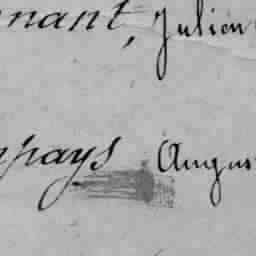 nant, Julien
pays Augus